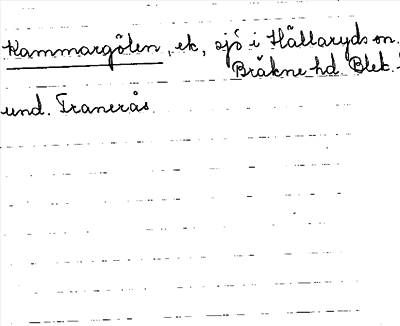 Kammargölen, ek, sjö i Hällaryds sn.
Bräkne hd. Blek.
und. Tranerås.